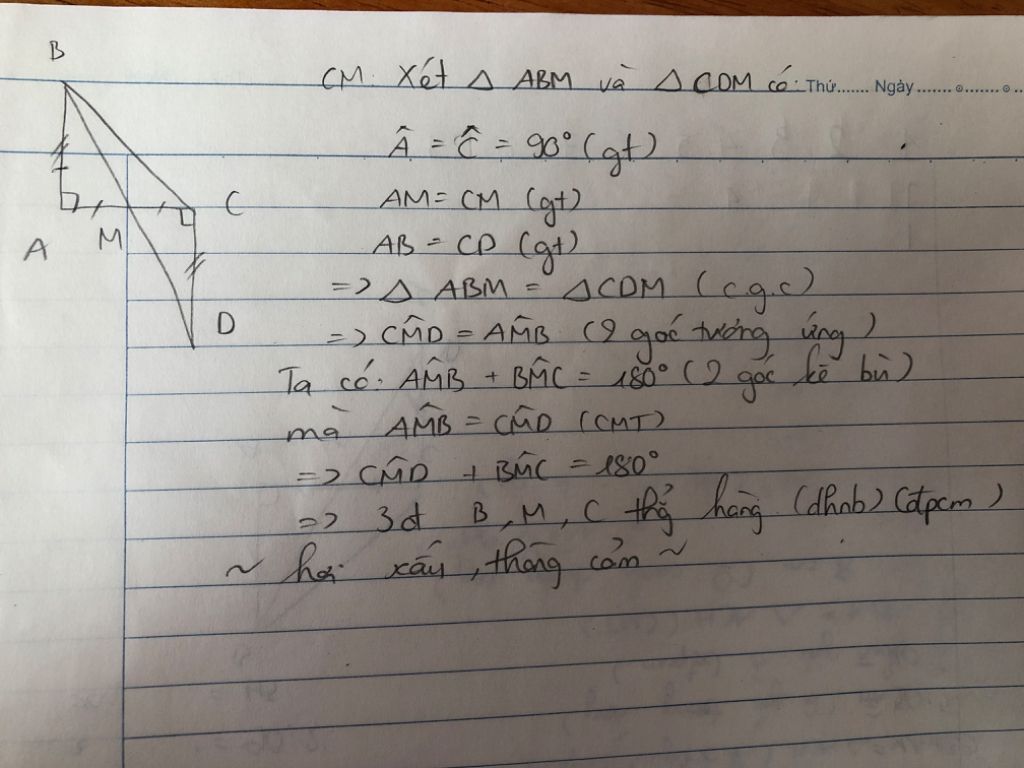 B
CM: Xét Δ ABM và Δ CDM có: Thứ....... Ngày
Â = Ĉ = 90° (gt)
AM = CM (gt)
C
AB = CD (gt)
A M
=> Δ ABM = Δ CDM (c.g.c)
D
=> CM̂D = AM̂B (2 góc tương ứng)
Ta có: AM̂B + BM̂C = 180° (2 góc kề bù)
mà AM̂B = CM̂D (CMT)
=> CM̂D + BM̂C = 180°
=> 3đ B, M, C thẳng hàng (dhnb) (đpcm)
~ hơi xấu, thông cảm ~